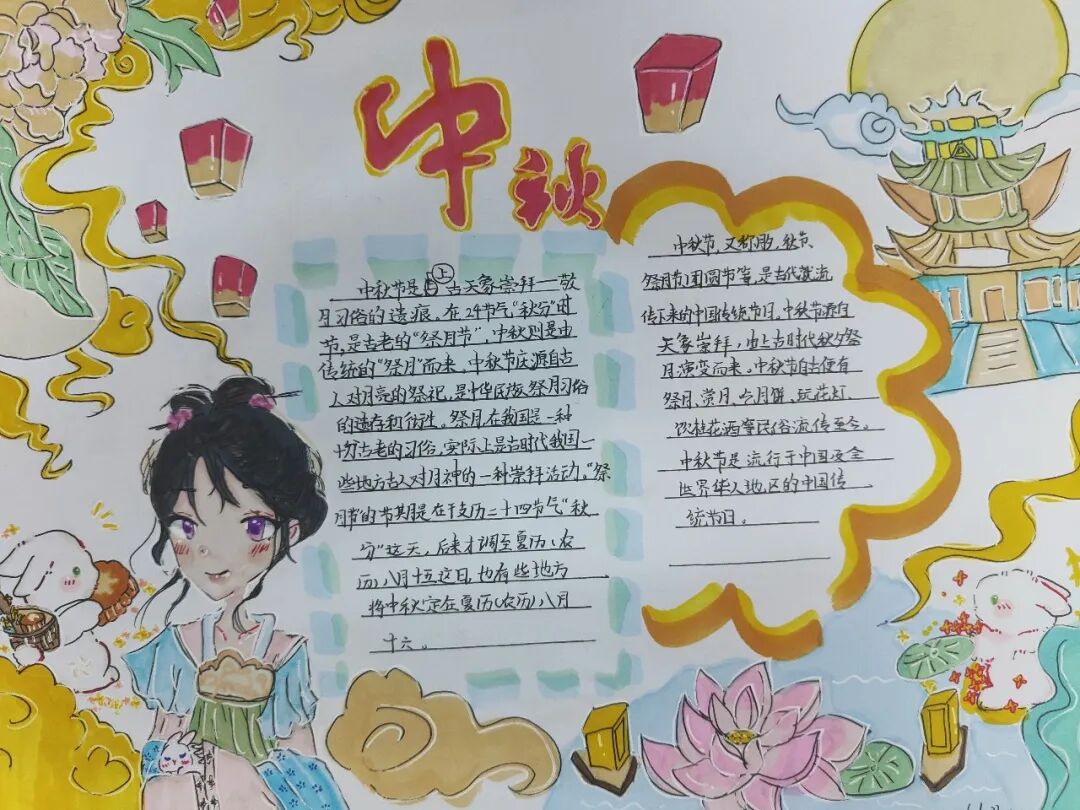 中秋
中秋节是上古天象崇拜一敬
月习俗的遗痕。在24节气“秋分”时
节,是古老的“祭月节”,中秋则是由
传统的“祭月”而来。中秋节庆源自古
人对月亮的祭祀,是中华民族祭月习俗
的遗存和衍生。祭月,在我国是一种
十分古老的习俗,实际上是古时代我国一
些地方古人对月神的一种崇拜活动。“祭
月节”的节期是在干支历二十四节气“秋
分”这天,后来才调至夏历(农
历)八月十五这日,也有些地方
将中秋定在夏历(农历)八月
十六。
中秋节,又称 秋节、
祭月节、团圆节等,是古代就流
传下来的中国传统节日,中秋节源自
天象崇拜,由上古时代秋夕祭
月演变而来。中秋节自古便有
祭月、赏月、吃月饼、玩花灯、
饮桂花酒等民俗流传至今。
中秋节是流行于中国及全
世界华人地区的中国传
统节日。